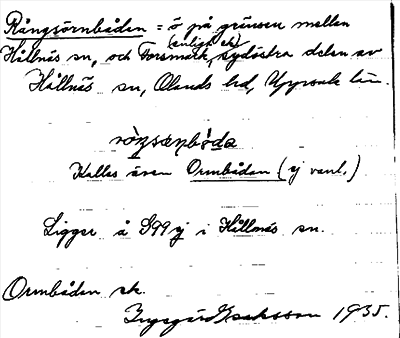 Rångsörnbåden = ö på gränsen mellan
Hållnäs sn, och Forsmark, (enligt ek) sydöstra delen av
Hållnäs sn, Olands hd, Uppsala län.
Kallas även Ormbåden (ej vanl.)
Ligger å S99 ej i Hållnäs sn.
Ormbåden ek.
Ingegärd Isaksson 1935.